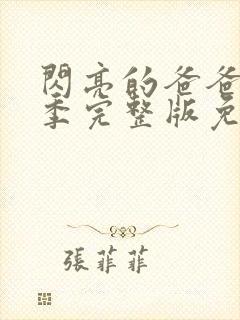 閃亮的爸爸
季完整版免
張菲菲